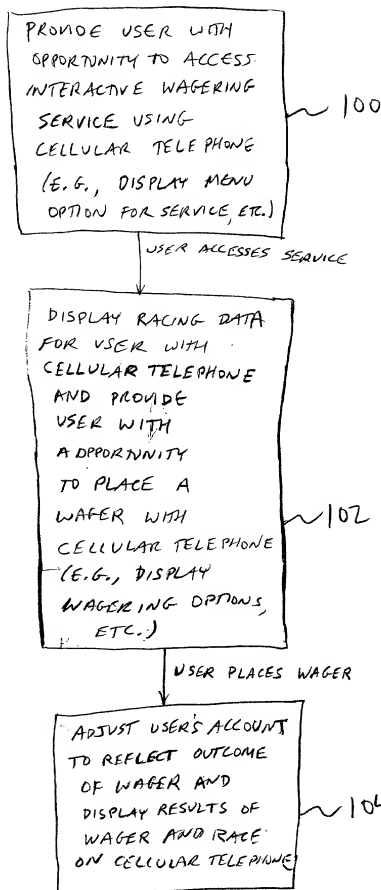 PROVIDE USER WITH
OPPORTUNITY TO ACCESS
INTERACTIVE WAGERING
SERVICE USING
CELLULAR TELEPHONE
(E.G., DISPLAY MENU
OPTION FOR SERVICE, ETC.)
100
USER ACCESSES SERVICE
DISPLAY RACING DATA
FOR USER WITH
CELLULAR TELEPHONE
AND PROVIDE
USER WITH
A OPPORTUNITY
TO PLACE A
WAGER WITH
CELLULAR TELEPHONE
(E.G., DISPLAY
WAGERING OPTIONS,
ETC.)
102
USER PLACES WAGER
ADJUST USER'S ACCOUNT
TO REFLECT OUTCOME
OF WAGER AND
DISPLAY RESULTS OF
WAGER AND RACE
ON CELLULAR TELEPHONE